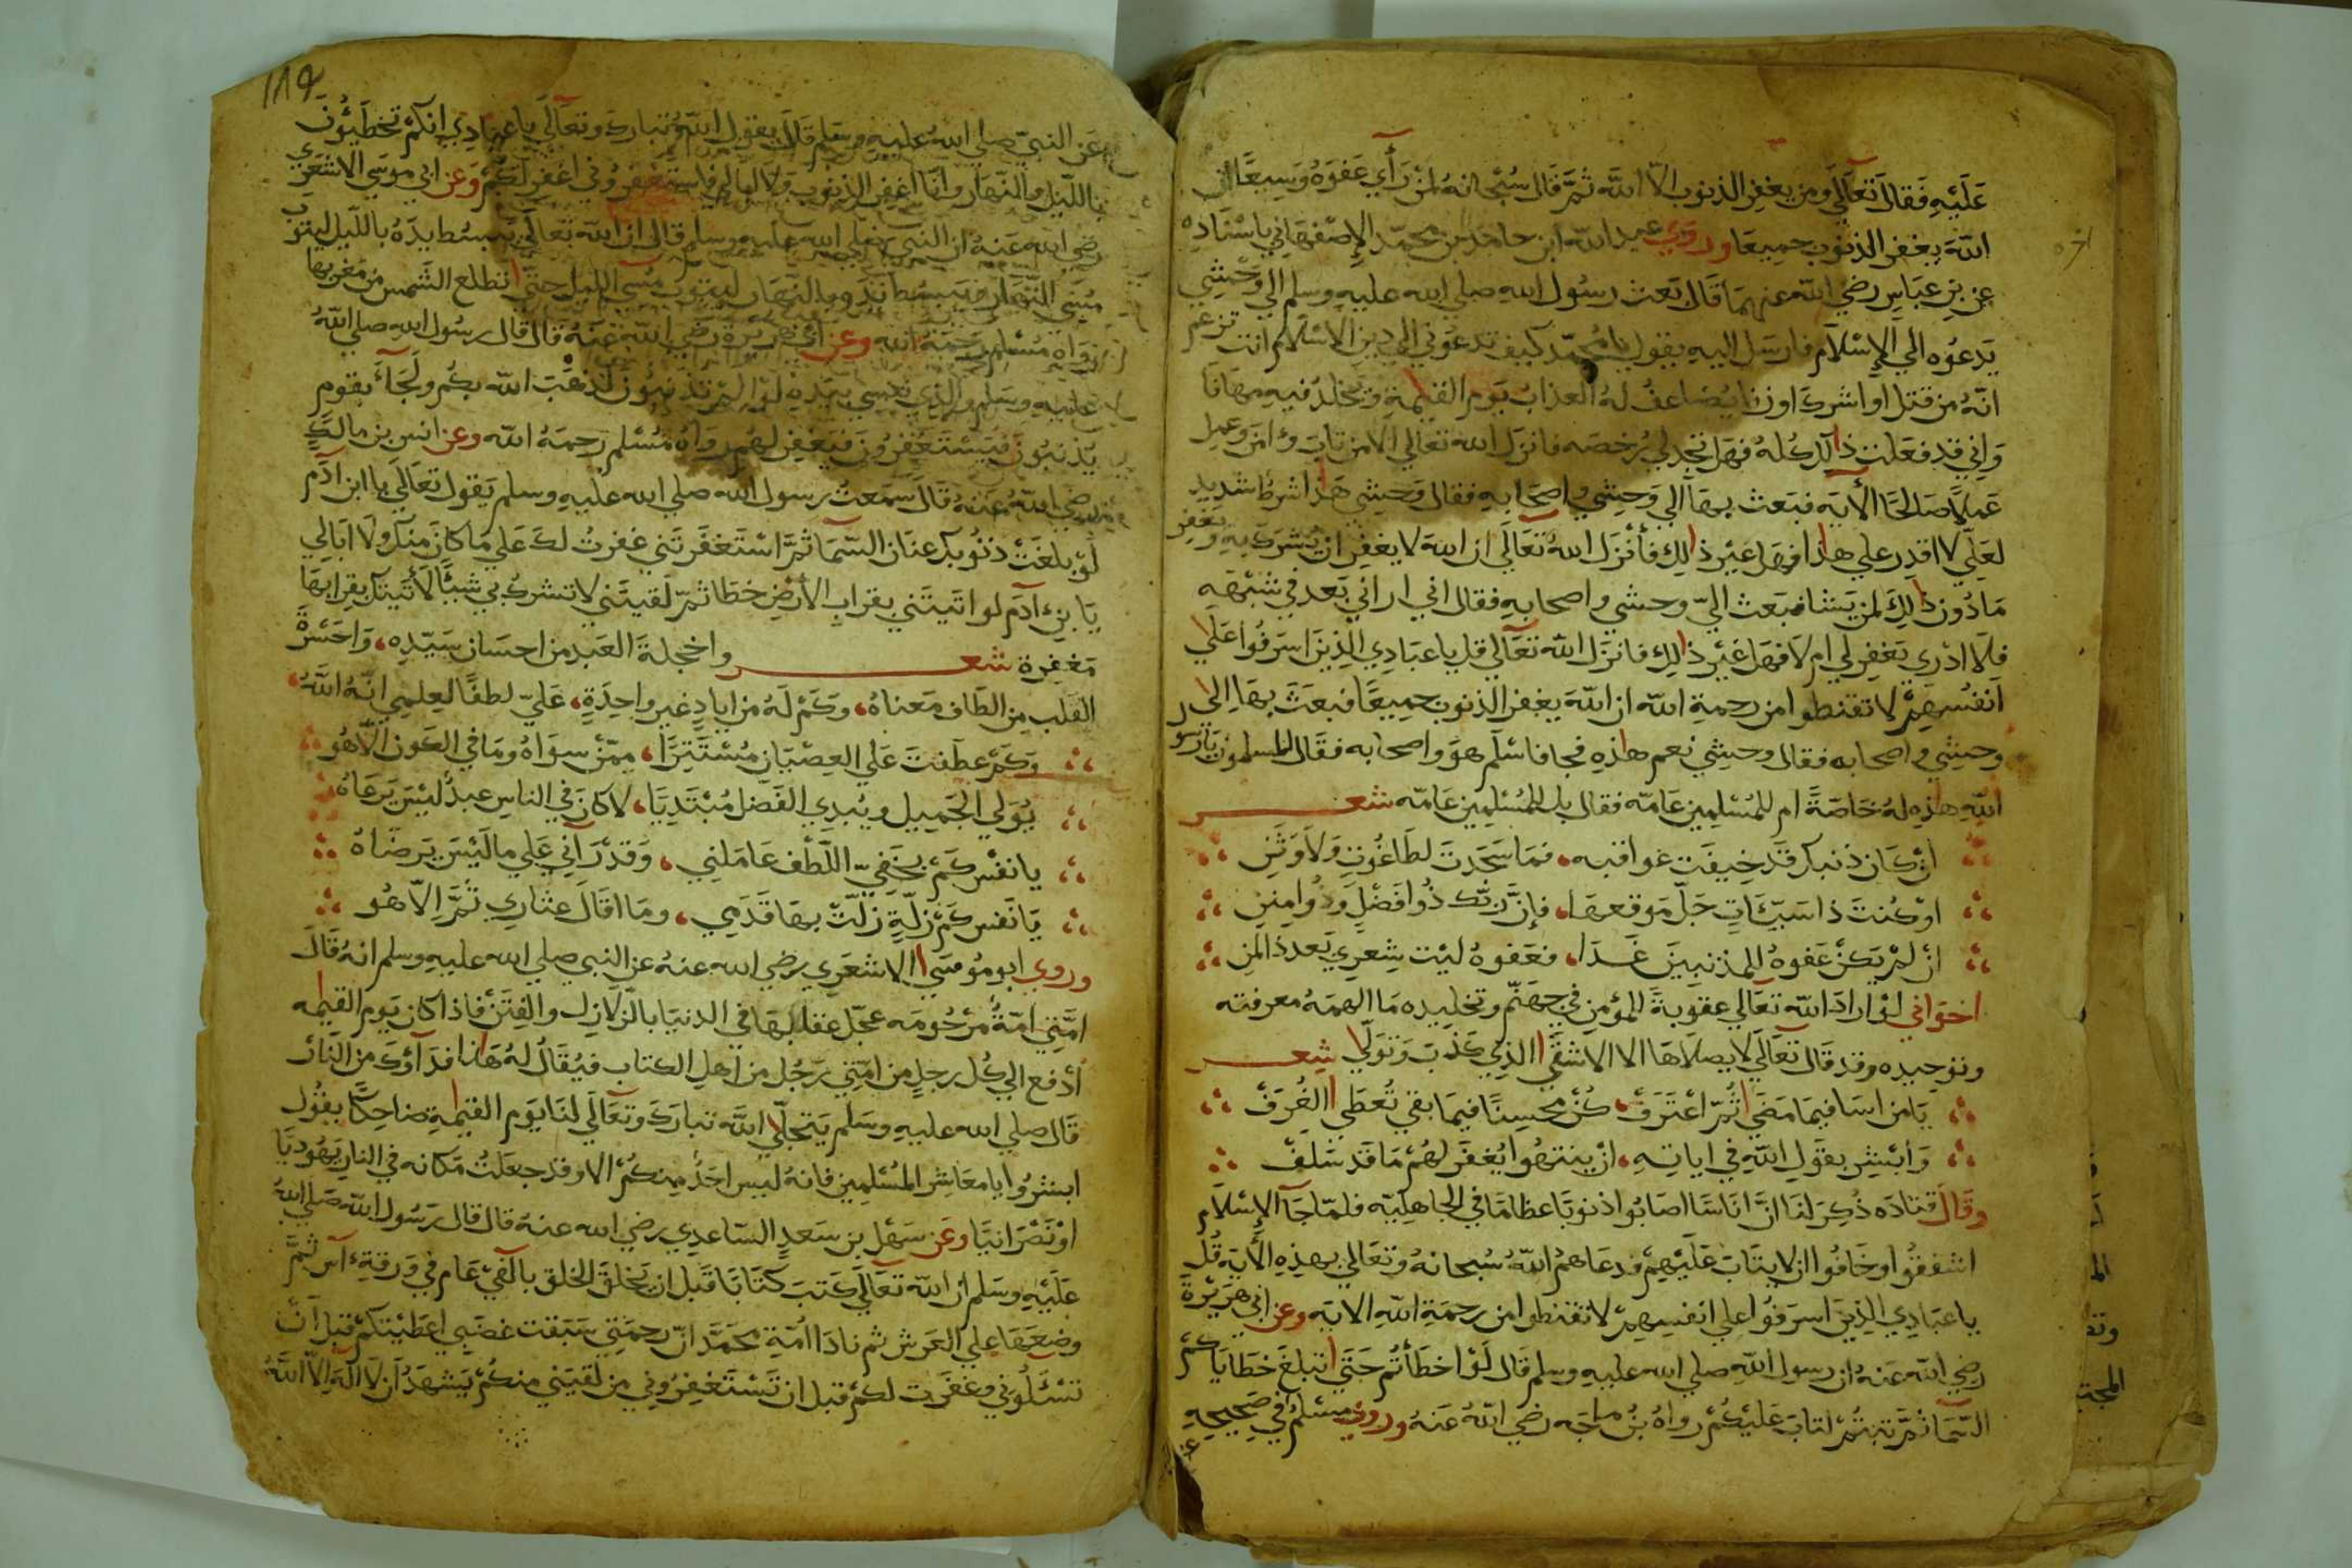 عَلَيْهِ فَقَالَ تَعَالَي وَمن يغفر الذنوب الاّ اللّه ثمَّ قال سُبْحانهُ لمن رَأي عَفوَهُ وَسِيعًا ان
اللّهَ يغفر الذنوب جميعَا وروي عبد اللّه ابن حامد بن محمّد الاِصْفهَاني باسْنَادِه
عن بن عبّاس رضي اللّه عنهمَا قَالَ بَعث رسُول اللهِ صلي الله عليهِ وسلم الي وَحْشي
يَدعوُه الي الاِسْلاَم فارسَل اليهِ يقول يا محمّد كيف تدعُوني الي دين الاسْلام انت تزعم
انّهُ من قتل او اشرك او زنا يُضاعفُ لهُ العذابُ يَوم القيمةِ وَيخلدُ فيهِ مهَانَا
وَاِني قد فعَلت ذالك كُلهُ فهَل تجد لي رُخصَه فانزَل الله تعَالي الا من تابَ وءامَن وعمل
عَملًا صَالحًا الأيَه فبَعث بهَا اَلي وَحشي واصحَابهِ فقال وَحشي هَذا شرطٌ شديد
لعَلّي لا اقدِر علي هاذا فهَل غير ذالِك فأنْزَل اللهُ تعَالَي ان اللهَ لا يغفِر ان يُشرَك بهِ وَيَغفر
مَا دُون ذالِكَ لمن يَشَا فبَعث الي وحشي واصحابهِ فقال اني اراني بَعد في شبْهَه
فلاَ ادْري يَغفِر لي ام لاَ فهَل غَيْر ذالِك فانزَل اللّه تعَالَي قل يا عبَادِي الذينَ اسرَفُوا عَلَي
اَنفُسهمْ لا تقنطوا من رحمةِ اللّه ان اللّهَ يغفر الذنوب جميعًا فبعَثَ بهَا الي
وحشي واصحابه فقال وحشي نعم هاذِهِ فجا فاسْلَم هوَ واصحَابه فقال المسلمون يارسو
اللّهِ هاذِه لهُ خَاصّةً ام للمُسْلِمين عَامّه فقال بل للمُسْلِمين عَامّه شعر
اِن كَان ذنبكَ قَد خِيفَت عواقبه، فمَا سَجَدتَ لطَاغُوتٍ وَلاَ وَثَنِ
اوْ كُنتَ ذا سَيّئَاتٍ جَلّ مَوقعهَا، فإنَّ ربّك ذُوا فَضْلٍ وَذُوا مِننِ
اِنْ لمْ يَكنْ عَفوهُ للمذنبينَ غَدَا، فعَفوهُ ليْت شِعري بَعد ذا لمن
اخوَاني لوْ ارادَ اللّه تعَالي عقوبةَ المؤمن في جهنّم وتخليده مَا الهمَهُ معرفته
وتوحيده وقد قال تعَالَي لا يصلاهَا الا الاشقَي الذي كَذبَ وَتَوَلّي شعر
يَا من اسَا فيمَا مَضَي ثمّ اعْتَرَفْ، كنْ محسنًا فيمَا بقي تُعطَي الغُرَفْ
وَابْشِر بقَولِ اللهِ في اياتهِ، اِنْ ينتهُوا يُغفَر لهُمْ مَا قَد سَلفْ
وقَالَ قتادَه ذُكِرَ لنَا انَّ انَاسًا اصَابُوا ذنوبًا عظامًا في الجاهليّه فلمّا جَآ الاِسْلاَم
اشفقُوا وخَافُوا ان لا يتَابَ عَلَيْهِمْ فدعَاهمُ اللّهُ سُبحانهُ وتعَالي بهذِهِ الأيَةِ قُل
يا عبَادِي الذينَ اسرَفُوا علي انفسِهمْ لا تقنطوا من رحمَةِ اللّهِ الايَه وعن ابي هَريْرةَ
رضي اللّه عَنهُ ان رسول اللّهِ صلي الله عليهِ وسلم قَال لَوْ اخطَأتم حَتّي تبلغَ خَطَايَاكمُ
السّمَا ثمَّ تبتُمْ لتابَ عَليْكُمْ رواهُ بنُ مَاجَه رضي اللّهُ عنهُ وروي مسْلمُ في صَحيحهِ
اخره
عَن النبيّ صلي اللهُ عليهِ وسَلم قَال يقول اللّهُ تبارك وتعَالَي يا عبَادِي انكمْ تخطِئُونَ
باللّيْل والنّهار وانَا اغفِر الذنوب وَلا ابَالي فاستغفِرُوني اغفر لكمْ وَعن ابي موسَي الاشعَري
رضي اللّه عَنهُ ان النبي صلي الله عليهِ وسلم قال ان اللّه تعَالَي يَبسُط يدَهُ باللّيل ليتوبَ
مُسي النّهَار ويَبسُط يَدهُ بالنهَار ليتوبَ مُسي الليل حتّي تطلع الشَمس من مَغربهَا
رَوَاه مُسْلم رَحمَهُ الله وعن ابي هُريْرةَ رضي اللّه عَنهُ قال قال رسُول اللهِ صلي اللّهُ
عليهِ وسَلم والذي نفسِي بيَدِهِ لوْ لمْ تذنبُون لذهَبَ اللّه بكُم ولَجَآ بقوم
يُذنبُونَ فيَسْتغفِرُونَ فيَغفِر لهُم رواهُ مُسْلم رَحمَهُ اللّه وعن انس بن مالكٍ
رضي اللّهُ عَنهُ قَالَ سمَعتُ رسول الله صلي الله عليهِ وسلم يَقول تعَالَي يا ابن ادَم
لَوْ بلغَتْ ذنوُبكَ عنَان السّمَا ثمَّ اسْتَغفَرتَني غفرتُ لكَ عَلي مَا كانَ مِنكَ ولا ابَالِي
يَا بن ادَم لو اتَيتَني بقراب الأرْضِ خطَا ثمّ لقيتَني لا تشرك بي شيئًا لأَتيتك بقرابهَا
مَغفِرة شعر واخجلةَ العَبد من احسَان سَيّدِه، وَاحَسْرةَ
القَلب مِن الطَاف مَعناهُ، وكَمْ لَهُ من ايادٍ غير واحِدَةٍ، عَليّ لطفًا لعِلمي انّهُ اللّهُ،
وَكمْ عطَفتَ عَلي العِصْيَان مُسْتَتِرًا، ممّنْ سِوَاهُ ومَا في الكَون الاّهُو
يُوَلي الجَميل ويُبدِي الفَضل مُبْتَديَا، لا كان في الناسِ عبدٌ ليْسَ يَرعَاهُ
يا نفْس كَمْ بخَفيّ اللّطْف عَامَلني، وَقدْ رَآني عَلي ما ليْسَ يَرضَاهُ
يَا نَفس كَمْ زلّةٍ زلّتْ بهَا قَدَمي، ومَا اقَالَ عِثَاري ثمَّ الاّ هُو
وروي ابو مُوسَي الاشعَري رضي الله عنهُ عن النبي صلي الله عليهِ وسلم انهُ قَالَ
امَّتي امّةٌ مَرْحُومَه عجّل عقابهَا في الدنيَا بالزّلازل والفِتَنْ فاذا كان يَوم القيمه
اُدْفع الي كُل رجلٍ من امّتي رَجُل من اَهل الكتاب فيُقَالُ لهُ هَاذا فدَآوُكَ من النّارْ
قَال صلي الله عليهِ وسَلم يَتجلّي اللَّه تبَارَكَ وتعَالَي لنَا يَوم القيمَةِ ضاحِكًا يقُول
ابشرُوا يا مَعَاشر المُسْلمين فانهُ ليس احَدُ منكُمْ الا وقد جعَلتُ مَكانه في النار يَهُوديَا
اوْ نَصْرانيًا وعَن سَهْل بن سَعدٍ السّاعدِي رضي الله عنهُ قال قال رَسُول اللّه صَلي اللهُ
عَلَيْهِ وسَلم اِنّ اللّه تعَالَي كَتبَ كتَابًا قَبل ان يَخلقَ الخلق بألفَيْ عَام في وَرقةِ ءآس ثمَّ
وضعَهَا علي العَرش ثم نادَا اُمّةِ محَمّد انّ رحمَتي سَبَقت غضَبي اعطَيْتكمْ قبل اَنْ
تسْئَلُوني وغفَرت لكمْ قبل ان تَسْتَغفِرُوني من لقيَني منكُمْ يَشهَدُ اَن لا الَهَ الاّ اللَّهُ